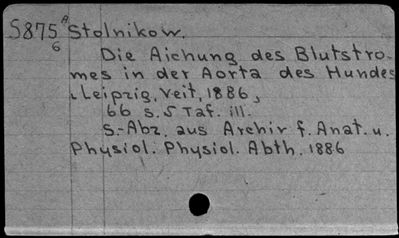 S875 A Stolnikow.
6
Die Aichung des Blutstro-
mes in der Aorta des Hundes
Leipzig, Veit, 1886,
66 s. 5 Taf. ill.
S.-Abz. aus Archiv f. Anat. u.
Physiol. Physiol. Abth. 1886